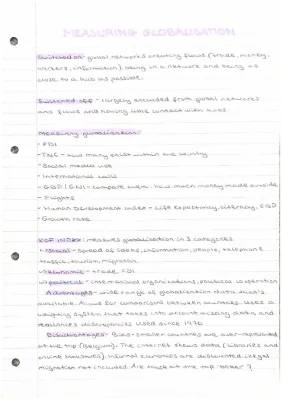 MEASURING GLOBALISATION
Switched on - global networks creating flows (trade, money,
workers, information). being in a network and being as
close to a hub as possible.
Switched off - largely excluded from global networks
and flows and having little contact with hubs
Measuring globalisation:
• FDI
• TNC - how many exist within the country
• Social media use
• International calls
• GDP/GNI - compare them. How much money made outside
• Flights
• Human Development Index - Life Expectancy, Literacy, GDP
• Growth rate
KOF INDEX: measures globalisation in 3 categories
social - spread of ideas, information, people, telephone
traffic, tourism, migration
economic - trade, FDI
political - international organisations, political cooperation
Advantages - wide range of globalisation data that's
available. Allows for comparisons between countries. Uses a
weighting system that takes into account missing data and
measures discrepancies. Used since 1970
Disadvantages - Bias - smaller countries are over-represented
at the top (Belgium). The internet skews data (libraries and
online libraries). Informal economies are discounted. Illegal
migration not included. Are those at the top 'better'?